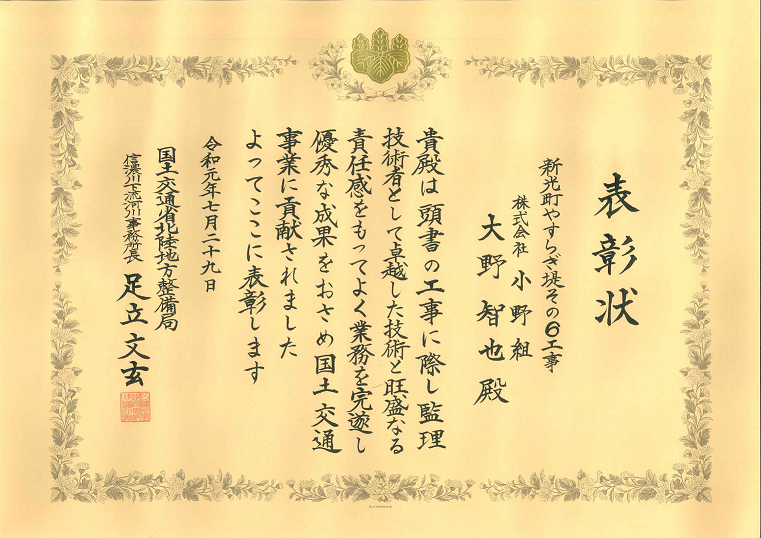 表彰状
新光町やすらぎ堤その6工事
株式会社 小野組
大野智也殿
貴殿は頭書の工事に際し監理
技術者として卓越した技術と旺盛なる
責任感をもってよく業務を完遂し
優秀な成果をおさめ国土交通
事業に貢献されました
よってここに表彰します
令和元年七月二十九日
国土交通省北陸地方整備局
信濃川下流河川事務所長 足立文玄